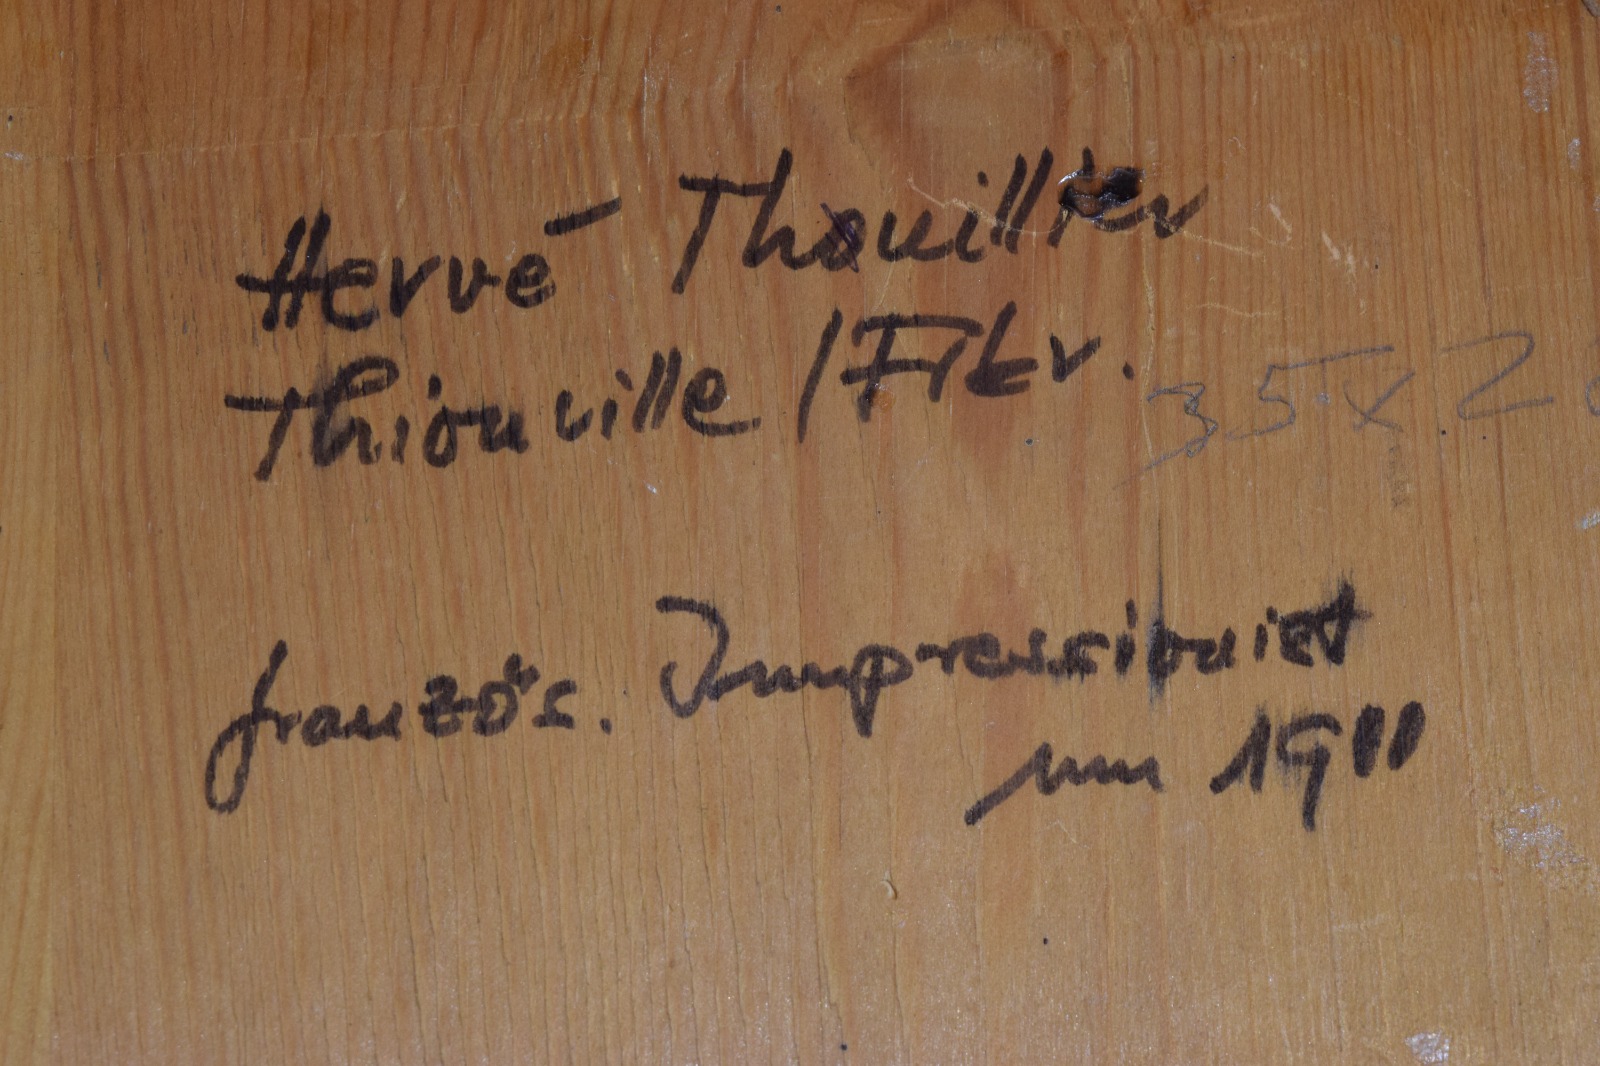 Hervé Thouillier
Thionville / Frkr.
35 x 2
französ. Impressionist
um 1911